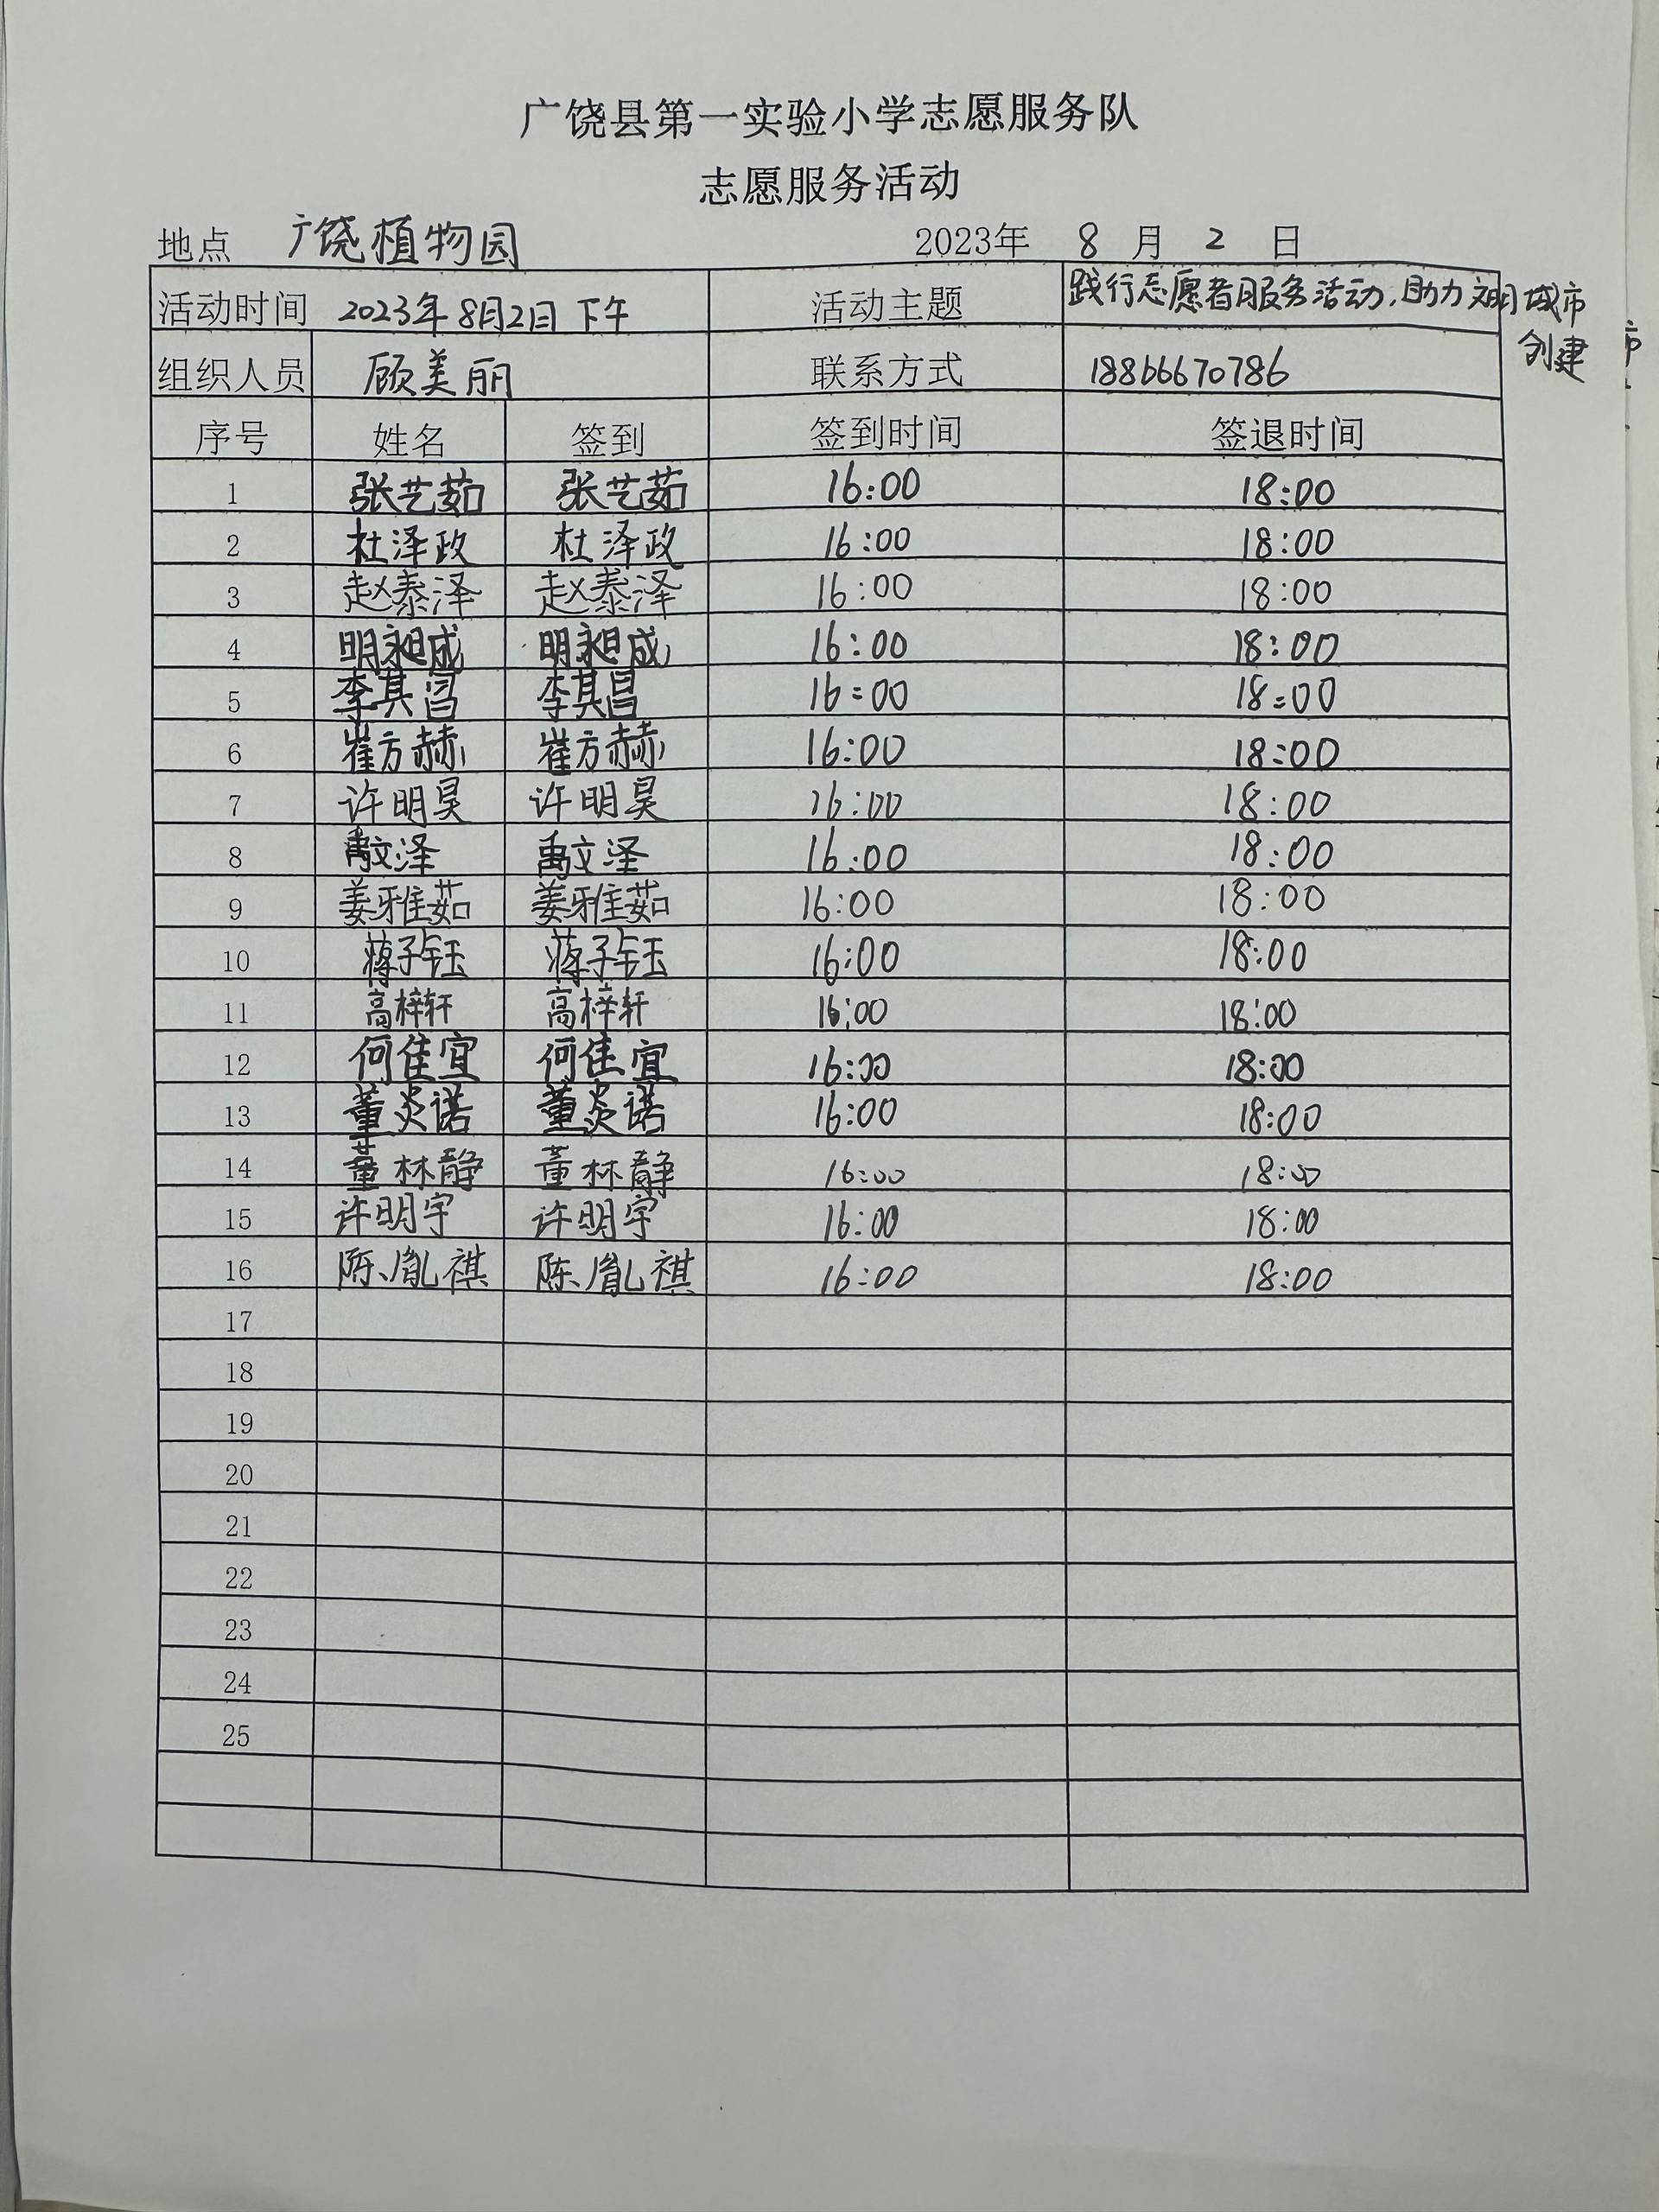 广饶县第一实验小学志愿服务队
志愿服务活动
地点 广饶植物园 2023年 8 月 2 日
活动时间 2023年8月2日下午 活动主题 践行志愿者服务活动,助力文明城市
创建
组织人员 顾美丽 联系方式 18866670786
序号 姓名 签到 签到时间 签退时间
1 张艺茹 张艺茹 16:00 18:00
2 杜泽政 杜泽政 16:00 18:00
3 赵泰泽 赵泰泽 16:00 18:00
4 明昶成 明昶成 16:00 18:00
5 李其昌 李其昌 16:00 18:00
6 崔方赫 崔方赫 16:00 18:00
7 许明昊 许明昊 16:00 18:00
8 禹文泽 禹文泽 16:00 18:00
9 姜雅茹 姜雅茹 16:00 18:00
10 蒋子钰 蒋子钰 16:00 18:00
11 高梓轩 高梓轩 16:00 18:00
12 何佳宜 何佳宜 16:00 18:00
13 董炎诺 董炎诺 16:00 18:00
14 董林静 董林静 16:00 18:00
15 许明宇 许明宇 16:00 18:00
16 陈胤祺 陈胤祺 16:00 18:00
17
18
19
20
21
22
23
24
25